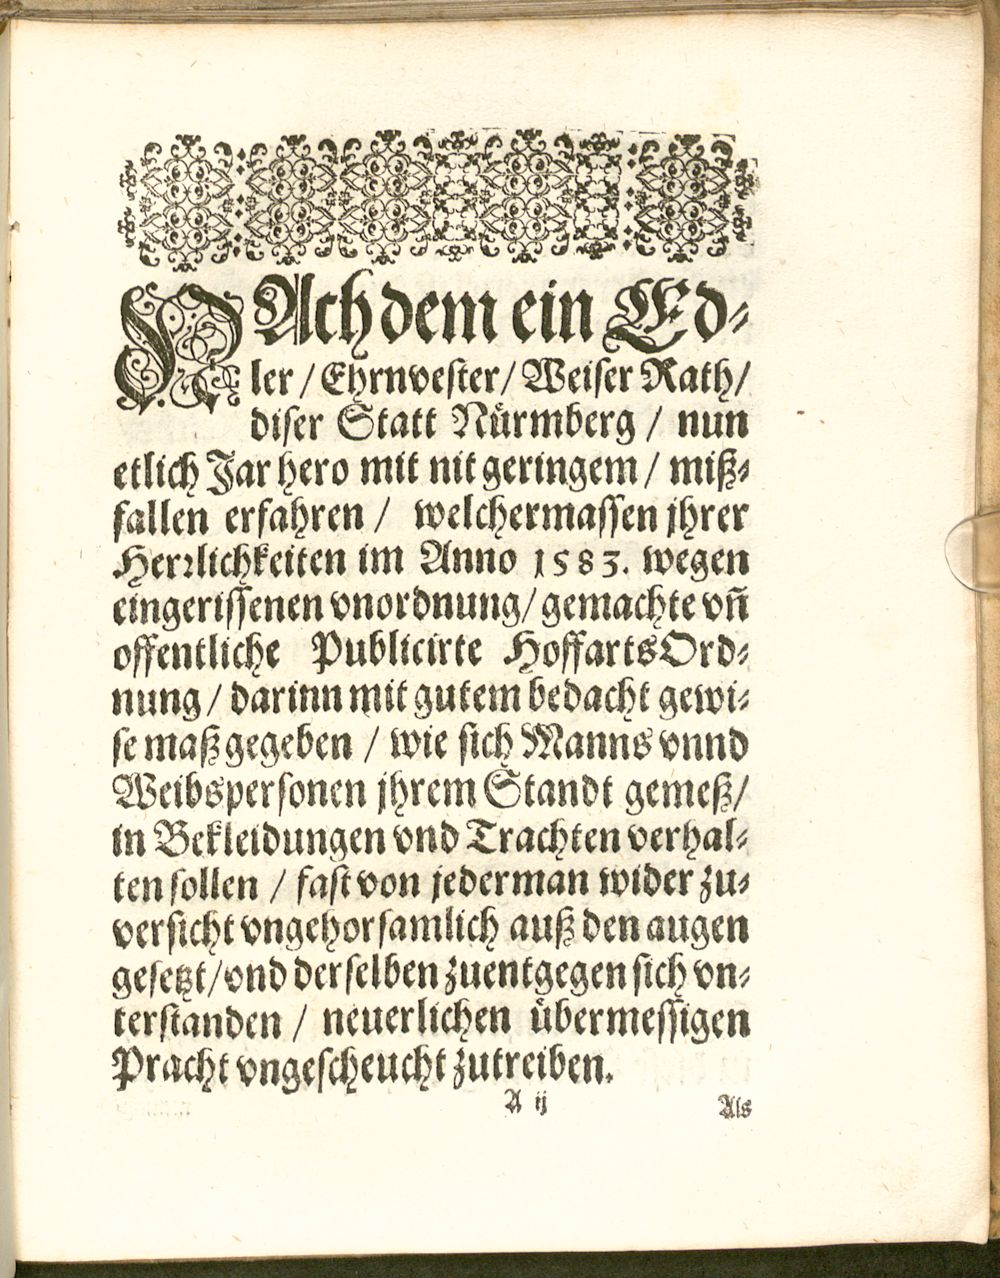 NAch dem ein Ed-
ler / Ehrnvester / Weiser Rath /
diser Statt Nuͤrmberg / nun
etlich Jar hero mit nit geringem / miß-
fallen erfahren / welchermassen jhrer
Herꝛlichkeiten im Anno 1583. wegen
eingerissenen vnordnung / gemachte vñ
offentliche Publicirte HoffartsOrd-
nung / darinn mit gutem bedacht gewi-
se maß gegeben / wie sich Manns vnnd
Weibspersonen jhrem Standt gemeß /
in Bekleidungen vnd Trachten verhal-
ten sollen / fast von jederman wider zu-
versicht vngehorsamlich auß den augen
gesetzt / vnd derselben zuentgegen sich vn-
terstanden / neuerlichen uͤbermessigen
Pracht vngescheucht zutreiben.
A ij Als